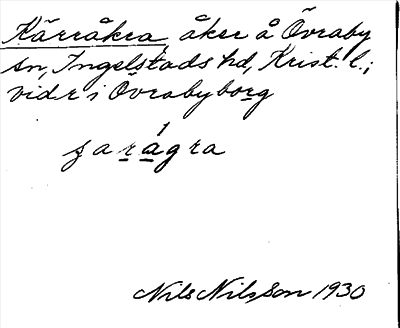 Kärråkra, åker å Övraby
sn, Ingelstads hd, Krist. l.;
vid r i Övrabyborg
1
ʒarågra
Nils Nilsson 1930